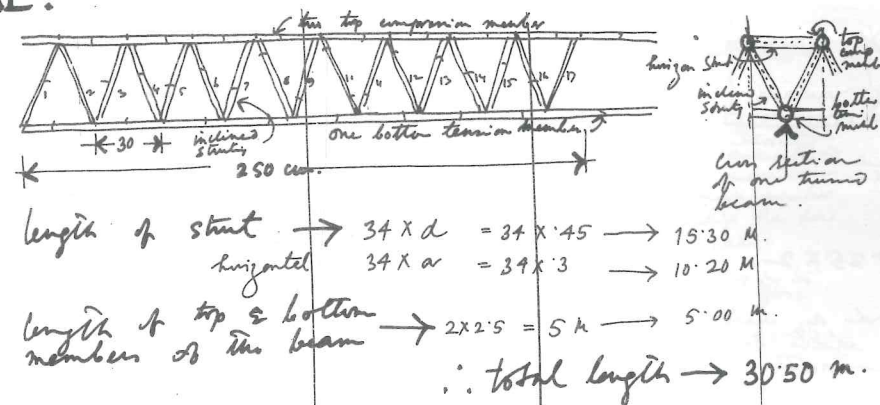 L:
this top compression member
1 2 3 4 5 6 7 8 9 11 4 12 13 14 15 16 17
30
inclined struts
one bottom tension member
250 cm.
horizon strut
inclined struts
top comp member
bottom
cross section of one trussed beam.
length of strut → 34 x d = 34 x .45 → 15.30 M.
horizontal 34 x a = 34 x .3 → 10.20 M
length of top & bottom members of the beam → 2 x 2.5 = 5 M → 5.00 m.
∴ total length → 30.50 m.